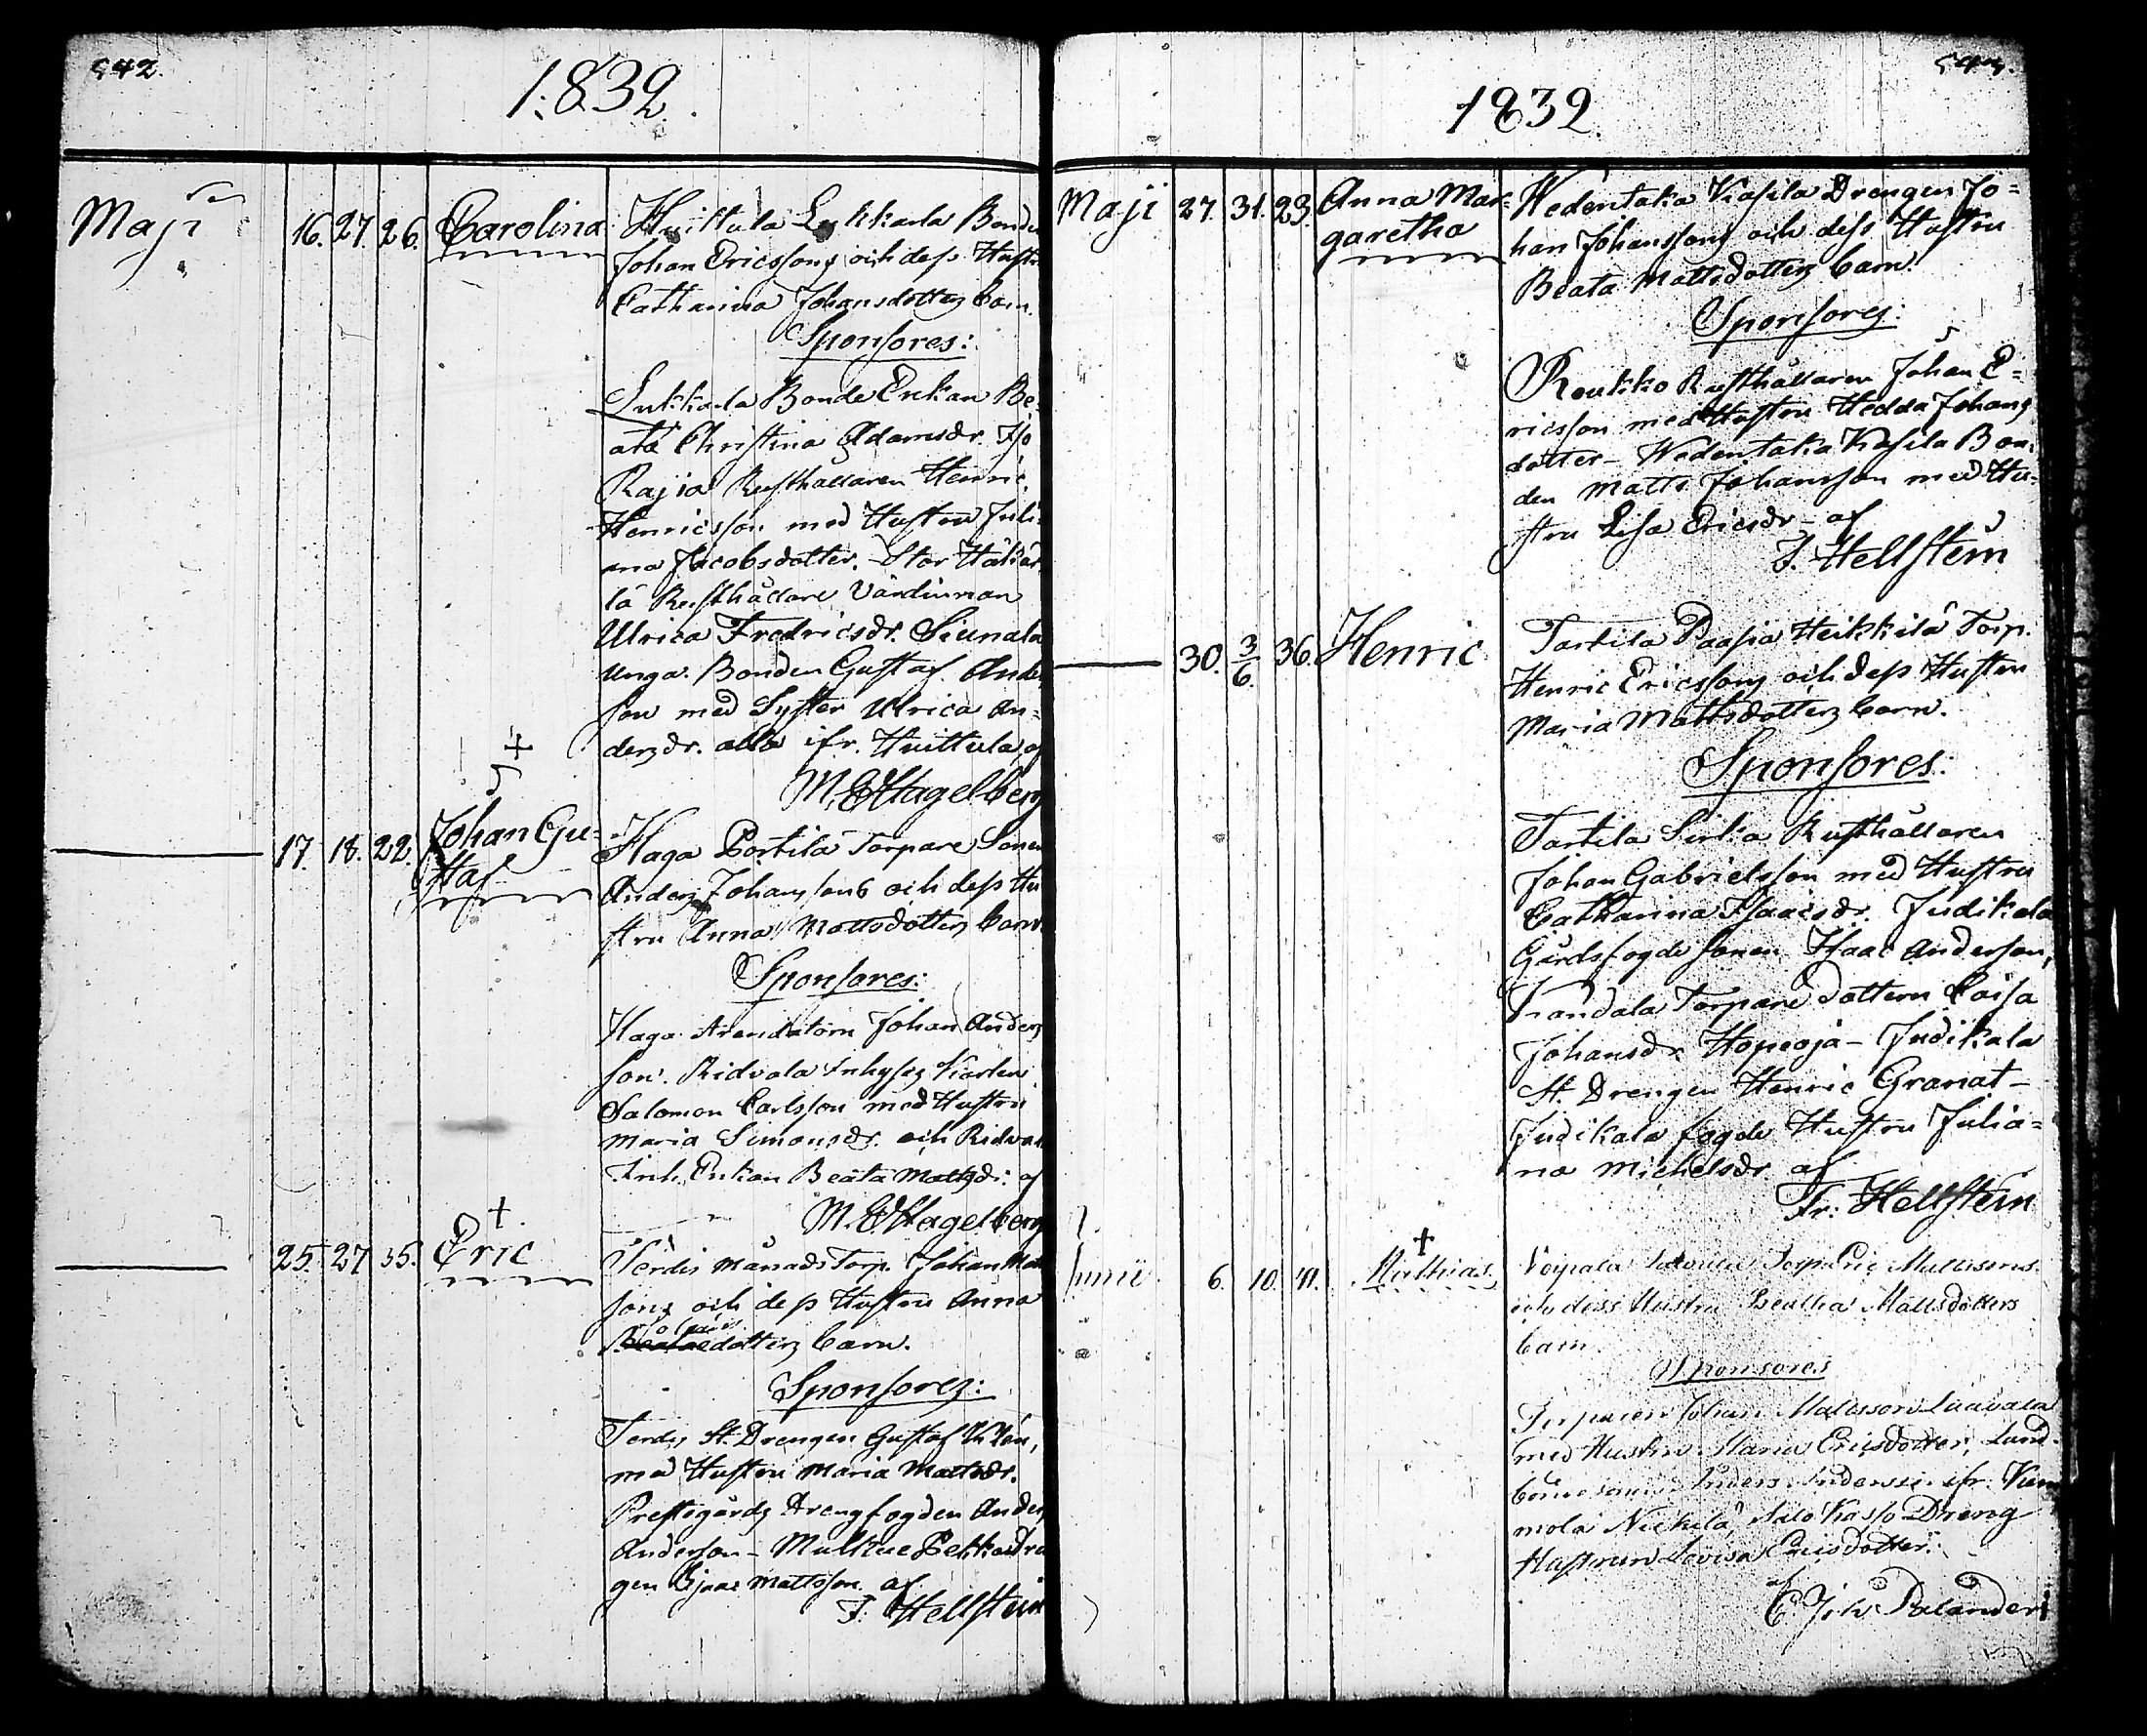 542.
1832.
Maji 16. 27. 26. Carolina Huittula Lukkarla Bonden
Johan Ericssons och dess Hustru
Catharina Johansdotters barn.
Sponsores:
Lukkarla Bonde Enkan Be-
ata Christina Adamsdr. Iso
Rajia Rusthållaren Henric
Henricsson med Hustru Juli-
ana Jacobsdotter. Stor
Rusthållare Värdinnan
Ulrica Fredricsdr. Siunala
Unga Bonden Gustaf Anders
son med Syster Ulrica An-
dersdr. alla ifr. Huittula, af
M. E. Hagelberg
+
17. 18. 22. Johan Gu-
staf
Haga Pertilä Torpare Sonen
Anders Johanssons och dess Hu
stru Anna Mattsdotters barn
Sponsores:
Haga Arendatorn Johan Anders
son. Ridvala Inhyses Karlen
Salomon Carlsson med Hustru
Maria Simonsdr. och Ridvala
Inh. Enkan Beata Mattsdr. af
M. E. Hagelberg
+
25. 27. 35. Eric Terdis Månads Torp. Johan Matts
sons och dess Hustru Anna
dotters barn.
Sponsores:
Terdis St. Drengen Gustaf
med Hustru Maria Mattsdr.
Prestegårds Drengfogden Anders
Anderson - Pekka dren
gen Isaac Mattsson. af
F. Hellstein
543.
1832.
Maji 27. 31. 23. Anna Mar-
garetha
Wedentaka Kasila Drengen Jo-
han Johanssons och dess Hustru
Beata Mattsdotters barn.
Sponsores:
Roukko Rusthållaren Johan E-
ricsson med Hustru Hedda Johans
dotter - Wedentaka Kasila Bon-
den Matts Johansson med Hu-
stru Lisa Ericsdr. af
F. Hellstein
30. 3/6. 36. Henric Tarttila Paasia Heikkilä Torp.
Henric Ericssons och dess Hustru
Maria Mattsdotters barn.
Sponsores:
Tarttila Sirkia Rusthållaren
Johan Gabrielsson med Hustru
Catharina Isaacsdr. Judikala
Gårdsfogde Sonen Isaac Anderson,
Kandala Torpare dottern Caisa
Johansdr. Hopeoja - Judikala
St. Drengen Henric Granat -
Judikala fogde Hustru Julia-
na Michelsdr. af
Fr. Hellstein
+
Junii 6. 10. 41. Mathias Voipala Torp. Eric Mattssons
och dess Hustru Beatha Mattsdotters
barn
Sponsores
Torparen Johan Mattsson
med Hustru Maria Ericsdotter, Land-
bonde sonen Anders Anderss. ifr. Kem
mola Nickilä, Salo Kasso Dreng
Hustrun Lovisa Ericsdotter.
af
C. Joh. Palander